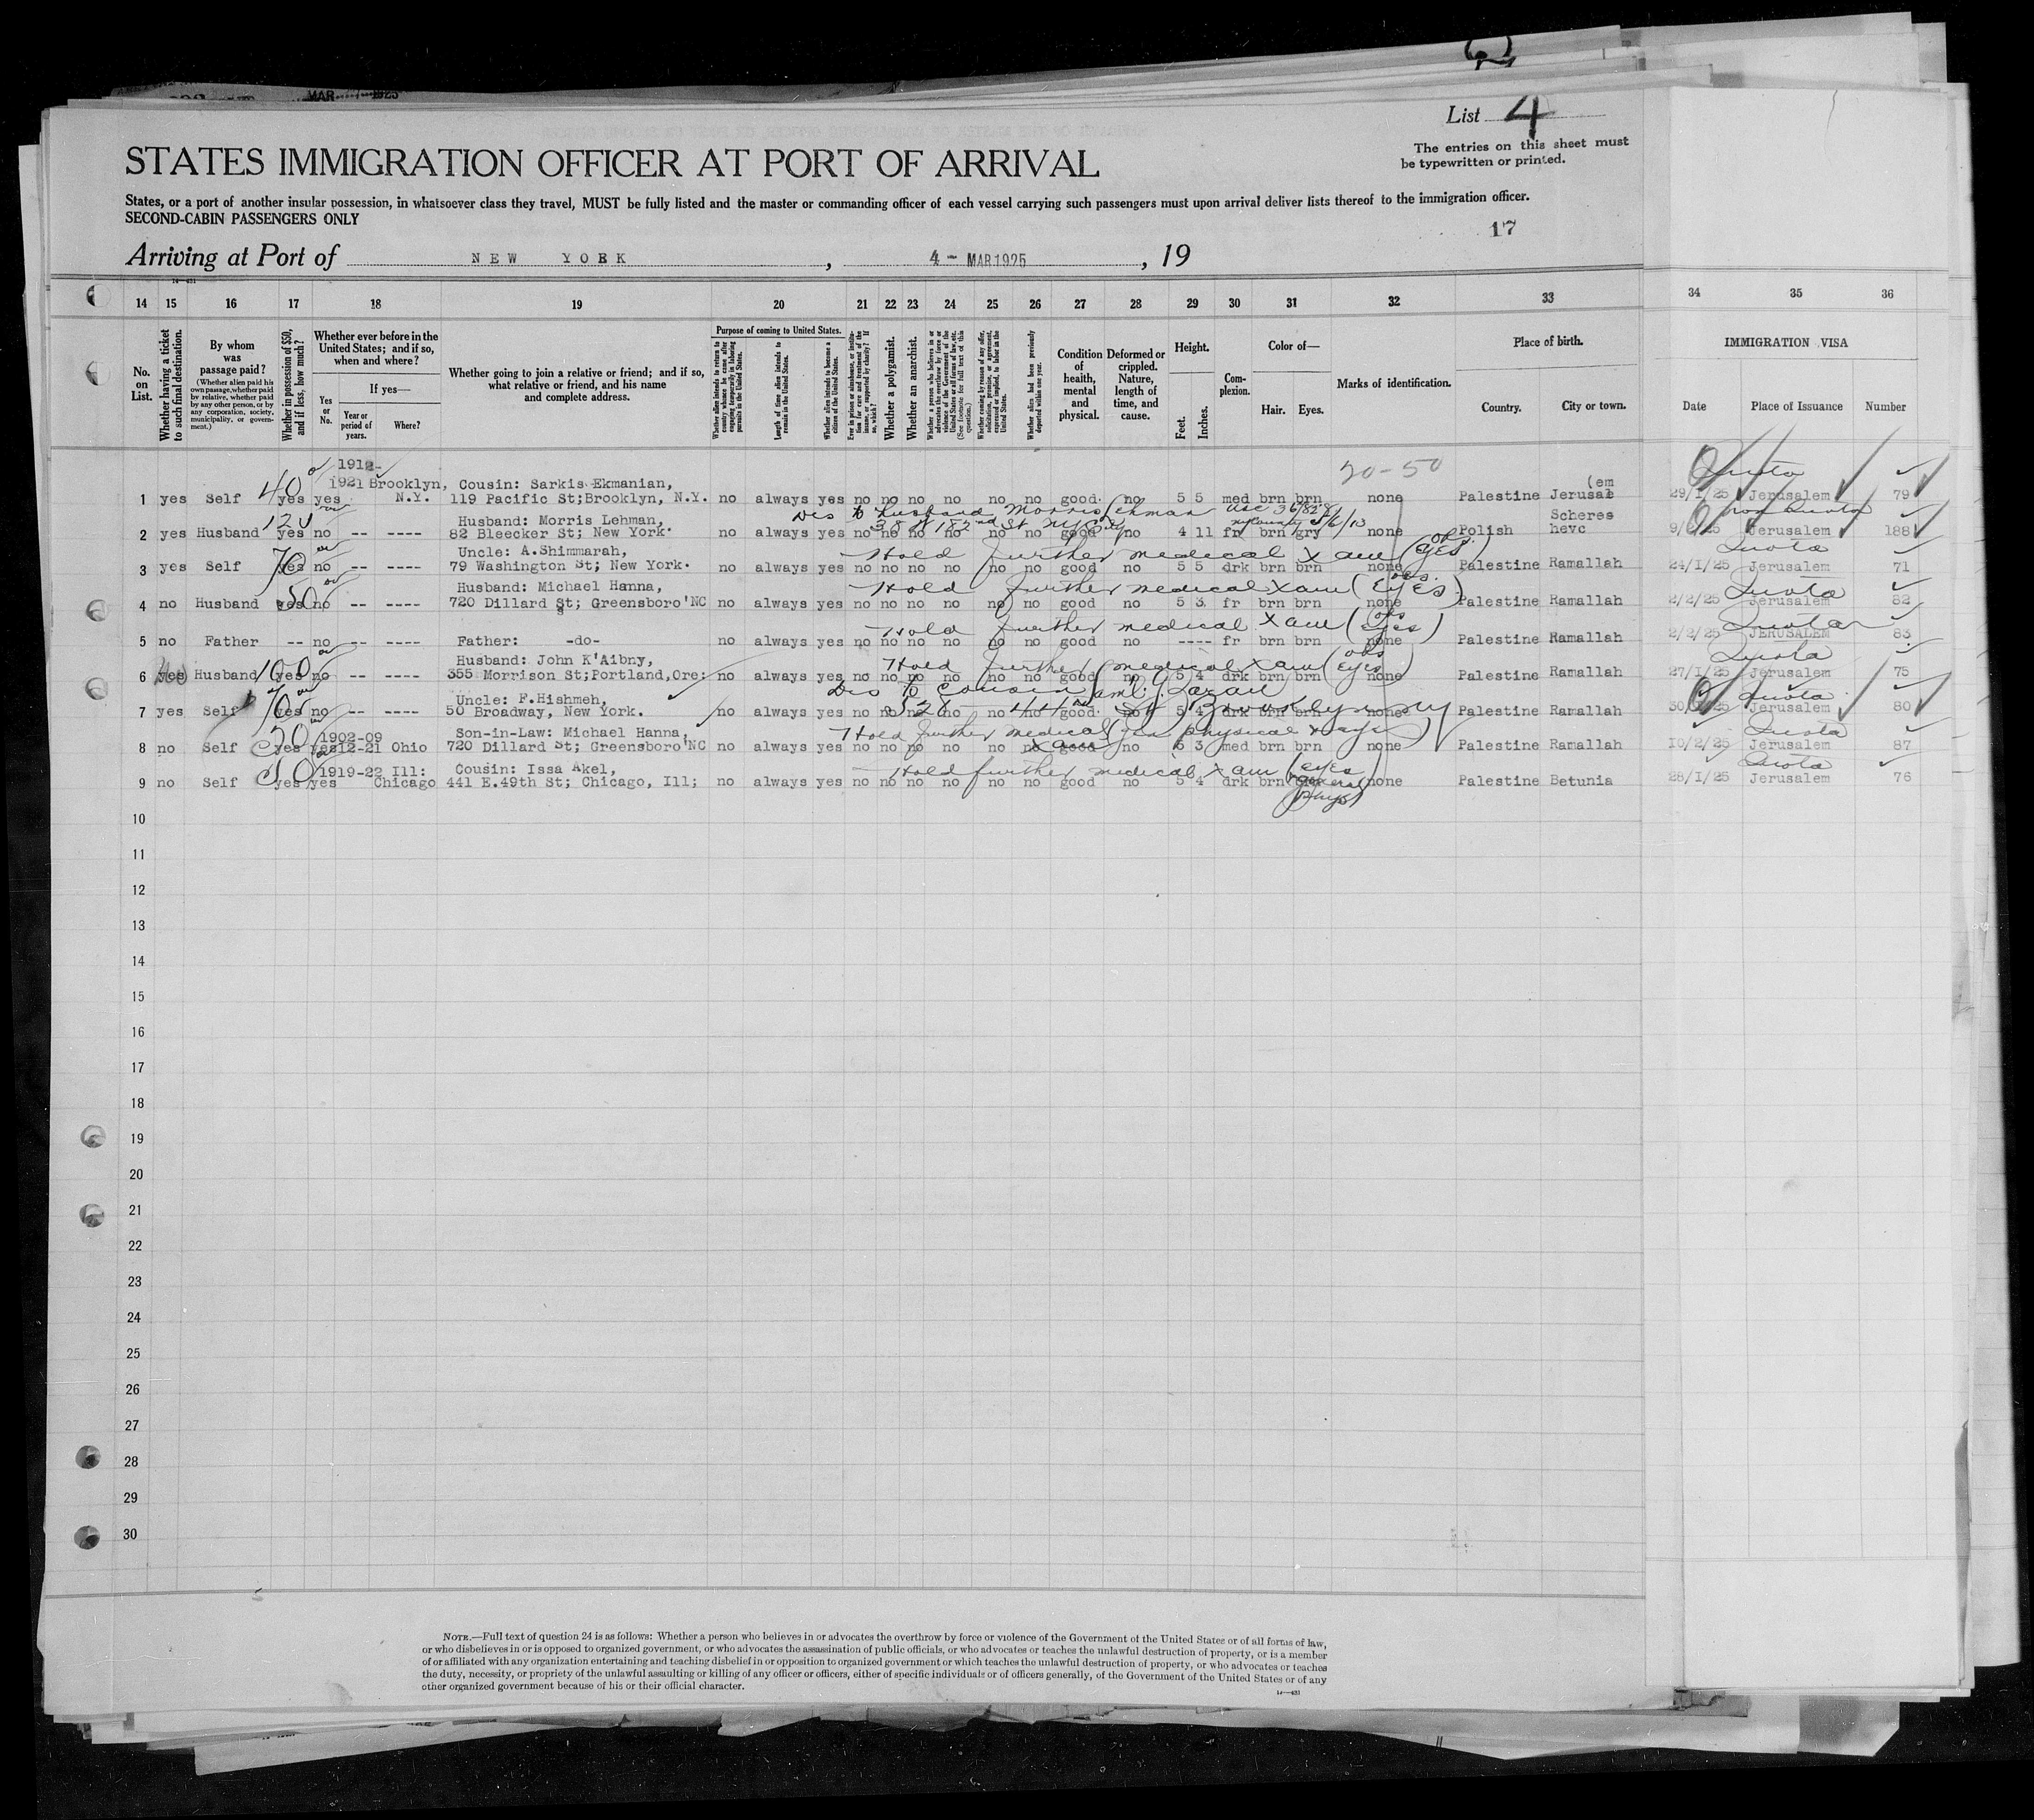 MAR 1925
List 4
The entries on this sheet must
be typewritten or printed.
STATES IMMIGRATION OFFICER AT PORT OF ARRIVAL
States, or a port of another insular possession, in whatsoever class they travel, MUST be fully listed and the master or commanding officer of each vessel carrying such passengers must upon arrival deliver lists thereof to the immigration officer.
SECOND-CABIN PASSENGERS ONLY
17
Arriving at Port of NEW YORK, 4- MAR 1925, 19
14 15 16 17 18 19 20 21 22 23 24 25 26 27 28 29 30 31 32 33 34 35 36
No. on List.
Whether having a ticket to such final destination.
By whom was passage paid?
(Whether alien paid his own passage, whether paid by relative, whether paid by any other person, or by any corporation, society, municipality, or government.)
Whether in possession of $50, and if less, how much?
Whether ever before in the United States; and if so, when and where?
If yes—
Yes or No.
Year or period of years.
Where?
Whether going to join a relative or friend; and if so, what relative or friend, and his name and complete address.
Purpose of coming to United States.
Whether alien intends to return to country whence he came after engaging temporarily in laboring pursuits in the United States.
Length of time alien intends to remain in the United States.
Whether alien intends to become a citizen of the United States.
Ever in prison or almshouse, or institution for care and treatment of the insane, or supported by charity? If so, which?
Whether a polygamist.
Whether an anarchist.
Whether a person who believes in or advocates the overthrow by force or violence of the Government of the United States or all forms of law, etc. (See footnote for full text of this question.)
Whether coming by reason of any offer, solicitation, promise, or agreement, expressed or implied, to labor in the United States.
Whether alien had been previously deported within one year.
Condition of health, mental and physical.
Deformed or crippled. Nature, length of time, and cause.
Height.
Feet. Inches.
Complexion.
Color of—
Hair. Eyes.
Marks of identification.
Place of birth.
Country. City or town.
IMMIGRATION VISA
Date Place of Issuance Number
1912- 20-50 Quota
1921 Brooklyn, Cousin: Sarkis Ekmanian, (em
1 yes Self 40 yes yes N.Y. 119 Pacific St;Brooklyn, N.Y. no always yes no no no no no no good no 5 5 med brn brn none Palestine Jerusal 29/1/25 Jerusalem 79
Husband: Morris Lehman, Dis to husband Morris Lehman Scheres Non Quota
2 yes Husband yes no -- ---- 82 Bleecker St; New York. no always yes no no no no no no good no 4 11 fr brn gry none Polish hevc Jerusalem 188
Uncle: A.Shimmarah, Hold further medical Xam (eyes) obs. Quota
3 yes Self 70 yes no -- ---- 79 Washington St; New York. no always yes no no no no no no good no 5 5 drk brn brn none Palestine Ramallah 24/1/25 Jerusalem 71
Husband: Michael Hanna, Hold further medical Xam (Eyes) obs. Quota
4 no Husband 50 yes no -- ---- 720 Dillard St; Greensboro'NC no always yes no no no no no no good no 5 3 fr brn brn none Palestine Ramallah 2/2/25 Jerusalem 82
Hold further medical Xam (Eyes) obs Quota
5 no Father -- no -- ---- Father: -do- no always yes no no no no no no good no ---- fr brn brn none Palestine Ramallah 2/2/25 JERUSALEM 83
Husband: John K'Aibny, Hold further medical Xam (Eyes) obs Quota
6 yes Husband 100 yes no -- ---- 355 Morrison St;Portland,Ore: no always yes no no no no no no good no 5 4 drk brn brn none Palestine Ramallah 27/1/25 Jerusalem 75
Uncle: F.Hishmeh, Dis to cousin Quota
7 yes Self 70 yes no -- ---- 50 Broadway, New York. no always yes no no no no no no good no 5 4 drk brn brn none Palestine Ramallah Jerusalem 80
1902-09 Son-in-Law: Michael Hanna, Hold further medical Quota
8 no Self 50 yes yes 12-21 Ohio 720 Dillard St; Greensboro'NC no always yes no no no no no no good no 5 3 med brn brn none Palestine Ramallah 10/2/25 Jerusalem 87
1919-22 Ill: Cousin: Issa Akel, Hold further medical Xam (eyes Quota
9 no Self yes yes Chicago 441 E.49th St; Chicago, Ill; no always yes no no no no no no good no 5 4 drk brn none Palestine Betunia 28/1/25 Jerusalem 76
10
11
12
13
14
15
16
17
18
19
20
21
22
23
24
25
26
27
28
29
30
NOTE.—Full text of question 24 is as follows: Whether a person who believes in or advocates the overthrow by force or violence of the Government of the United States or of all forms of law,
or who disbelieves in or is opposed to organized government, or who advocates the assassination of public officials, or who advocates or teaches the unlawful destruction of property, or is a member
of or affiliated with any organization entertaining and teaching disbelief in or opposition to organized government or which teaches the unlawful destruction of property, or who advocates or teaches
the duty, necessity, or propriety of the unlawful assaulting or killing of any officer or officers, either of specific individuals or of officers generally, of the Government of the United States or of any
other organized government because of his or their official character.
14—431